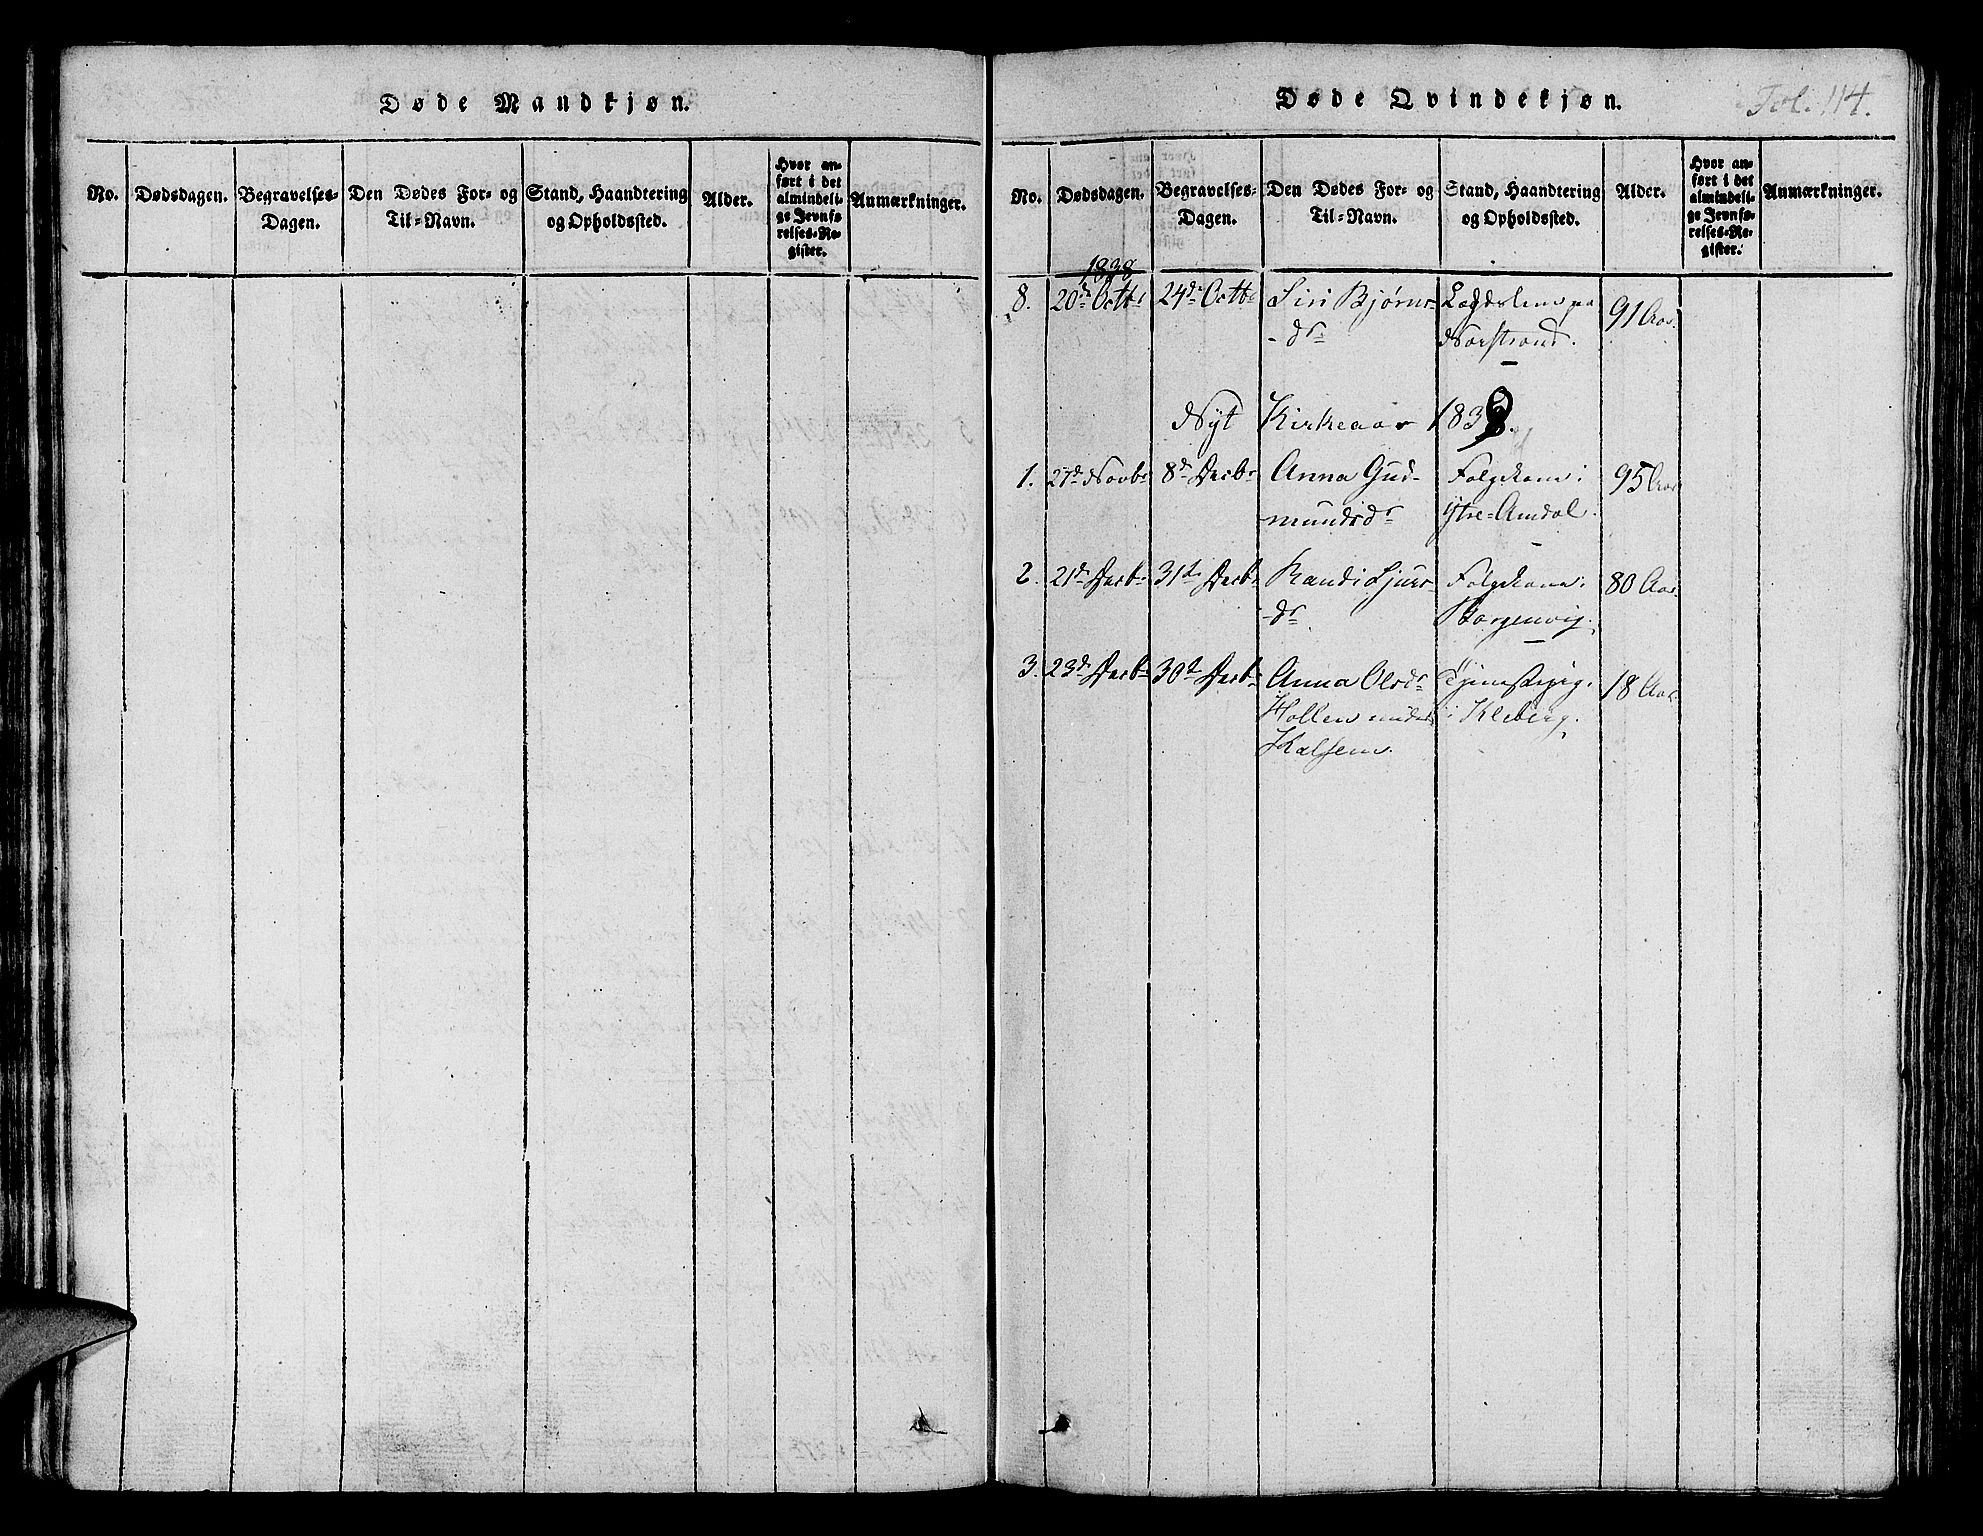 Døde Mandkjøn.
No.
Dødsdagen.
Begravelses-
Dagen.
Den Dødes For- og
Til-Navn.
Stand, Haandtering
og Opholdssted.
Alder.
Hvor an-
ført i det
almindeli-
ge Jevnfø-
relses-Re-
gister.
Anmærkninger.
Døde Qvindekjøn.
Fol. 114.
No.
Dødsdagen.
Begravelses-
Dagen.
Den Dødes For- og
Til-Navn.
Stand, Haandtering
og Opholdssted.
Alder.
Hvor an-
ført i det
almindeli-
ge Jevnfø-
relses-Re-
gister.
Anmærkninger.
1838
8. 20de Octbr 24de Octbr Siri Bjørns- paa 91 Aar.
-dr Norstrand.
Nyt Kirkeaar 1839.
1. 27de Novbr 8de Decbr Anna Gud- Folgekone i 95 Aar
-mundsdr Ytre-Amdal.
2. 21de Decbr 31te Decbr Randi Sjurs- Folgekone i 80 Aar.
-dr Borgenvig.
3. 23de Decbr 30te Decbr Anna Olsdr Tjenstepige. 18 Aar.
Hollen under i Kleberg.